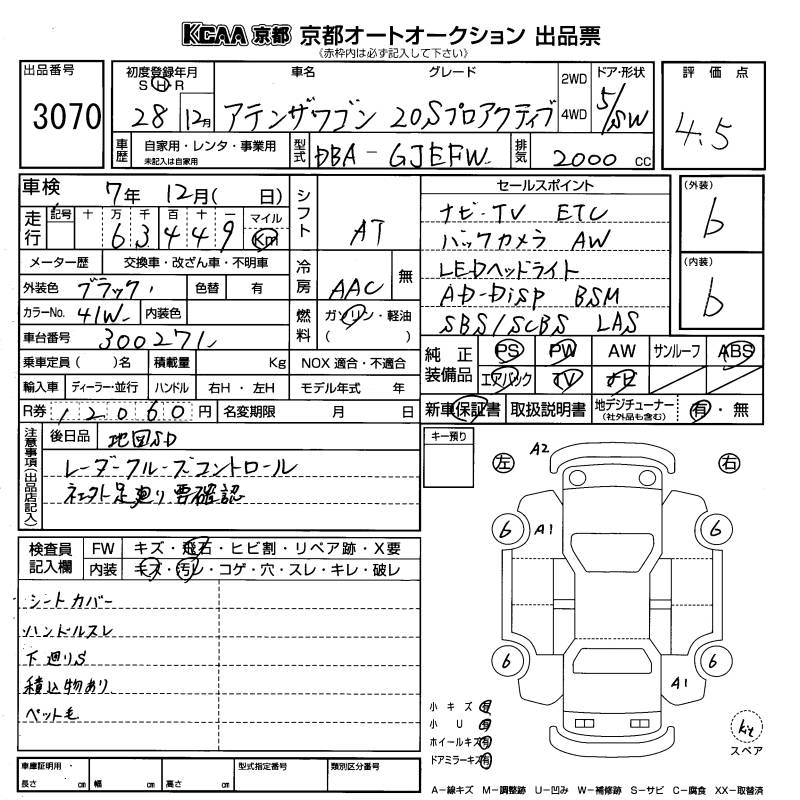 KCAA 京都 京都オートオークション 出品票
《赤枠内は必ず記入して下さい》
出品番号 初度登録年月 車名 グレード 2WD ドア・形状 評価点
S H R
3070 28 12月 アテンザワゴン 20Sプロアクティブ 4WD 5/SW 4.5
車歴 自家用・レンタ・事業用 型式 DBA-GJEFW 排気 2000 cc
未記入は自家用
車検 7年 12月( 日) シフト AT セールスポイント (外装)
走行 記号 十 万 千 百 十 一 マイル ナビ・TV ETC b
6 3 4 4 9 Km バックカメラ AW
メーター歴 交換車・改ざん車・不明車 冷房 AAC 無 LEDヘッドライト (内装)
外装色 ブラック 色替 有 AD-DiSP BSM b
カラーNo. 41W 内装色 燃料 ガソリン・軽油 SBS/SCBS LAS
車台番号 300271 ( )
乗車定員 ( )名 積載量 Kg NOX 適合・不適合 純正装備品 PS PW AW サンルーフ ABS
輸入車 ディーラー・並行 ハンドル 右H・左H モデル年式 年 エアバック TV ナビ
R券 12060 円 名変期限 月 日 新車保証書 取扱説明書 地デジチューナー (社外品も含む) 有・無
注意事項(出品店記入) 後日品 地図SD キー預り
レーダークルーズコントロール
足廻り要確認
A2
左 右
6 A1 6
検査員記入欄 FW キズ・飛石・ヒビ割・リペア跡・X要
内装 キズ・汚レ・コゲ・穴・スレ・キレ・破レ
シートカバー
ハンドルスレ
下廻りS
積込物あり
ペット毛
6 6
A1
小キズ 有
小U 有
ホイールキズ 有
ドアミラーキズ 有
kit
スペア
車庫証明用・ 型式指定番号 類別区分番号
長さ cm 幅 cm 高さ cm
A-線キズ M-調整跡 U-凹み W-補修跡 S-サビ C-腐食 XX-取替済